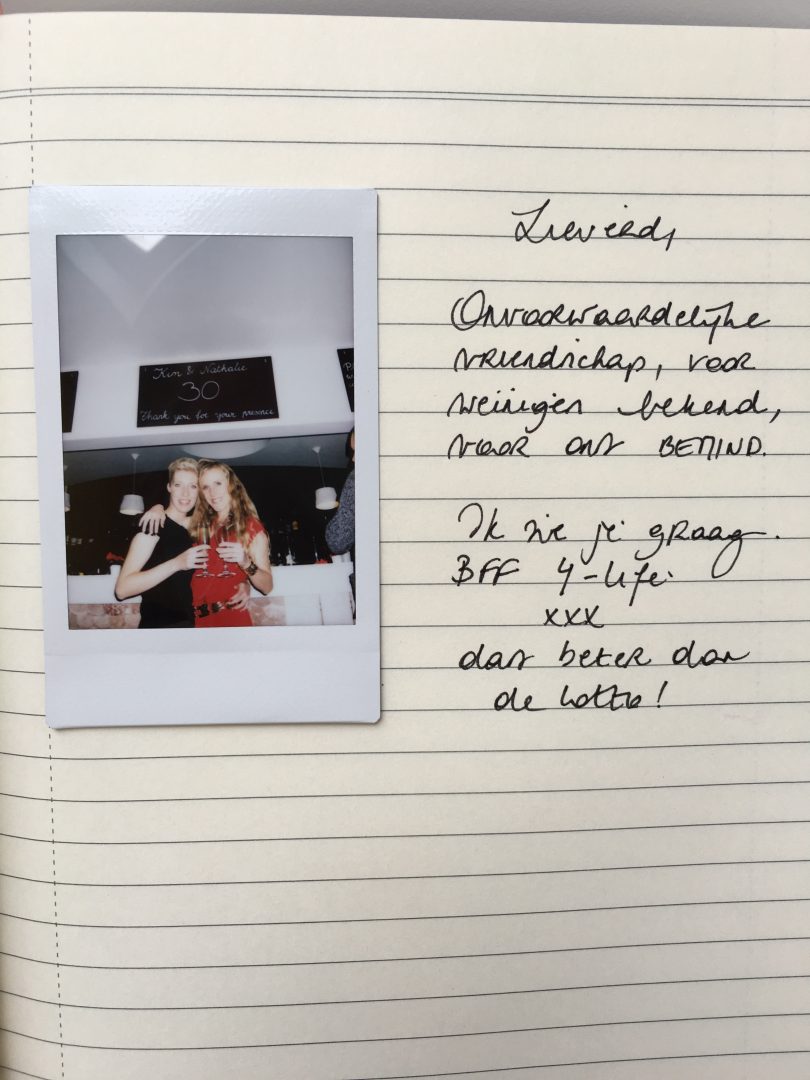 Kim & Nathalie
30
Thank you for your presence
Lieverd,
Onvoorwaardelijke
vriendschap, voor
weinigen bekend,
voor ons BEMIND.
Ik zie je graag.
BFF 4-life.
xxx
das beter dan
de lotto!